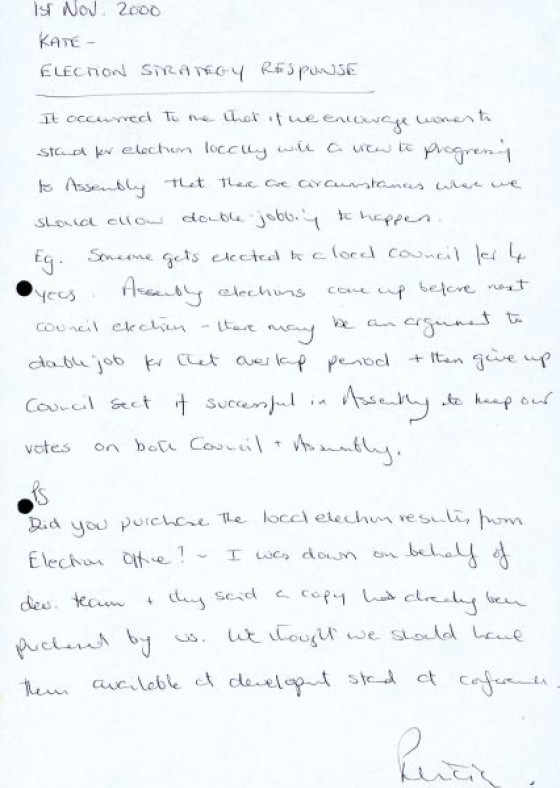 1st Nov. 2000
KATE -
ELECTION STRATEGY RESPONSE
It occurred to me that if we encourage women to
stand for election locally with a view to progressing
to Assembly that there are circumstances where we
should allow double-jobbing to happen.
Eg. Someone gets elected to a local council for 4
years. Assembly elections come up before next
council election - there may be an argument to
double job for that overlap period + then give up
Council seat if successful in Assembly to keep our
votes on both Council + Assembly.
PS
Did you purchase the local election results from
Election Office? - I was down on behalf of
dev. team + they said a copy had already been
purchased by us. We thought we should have
them available at development stand at conference.